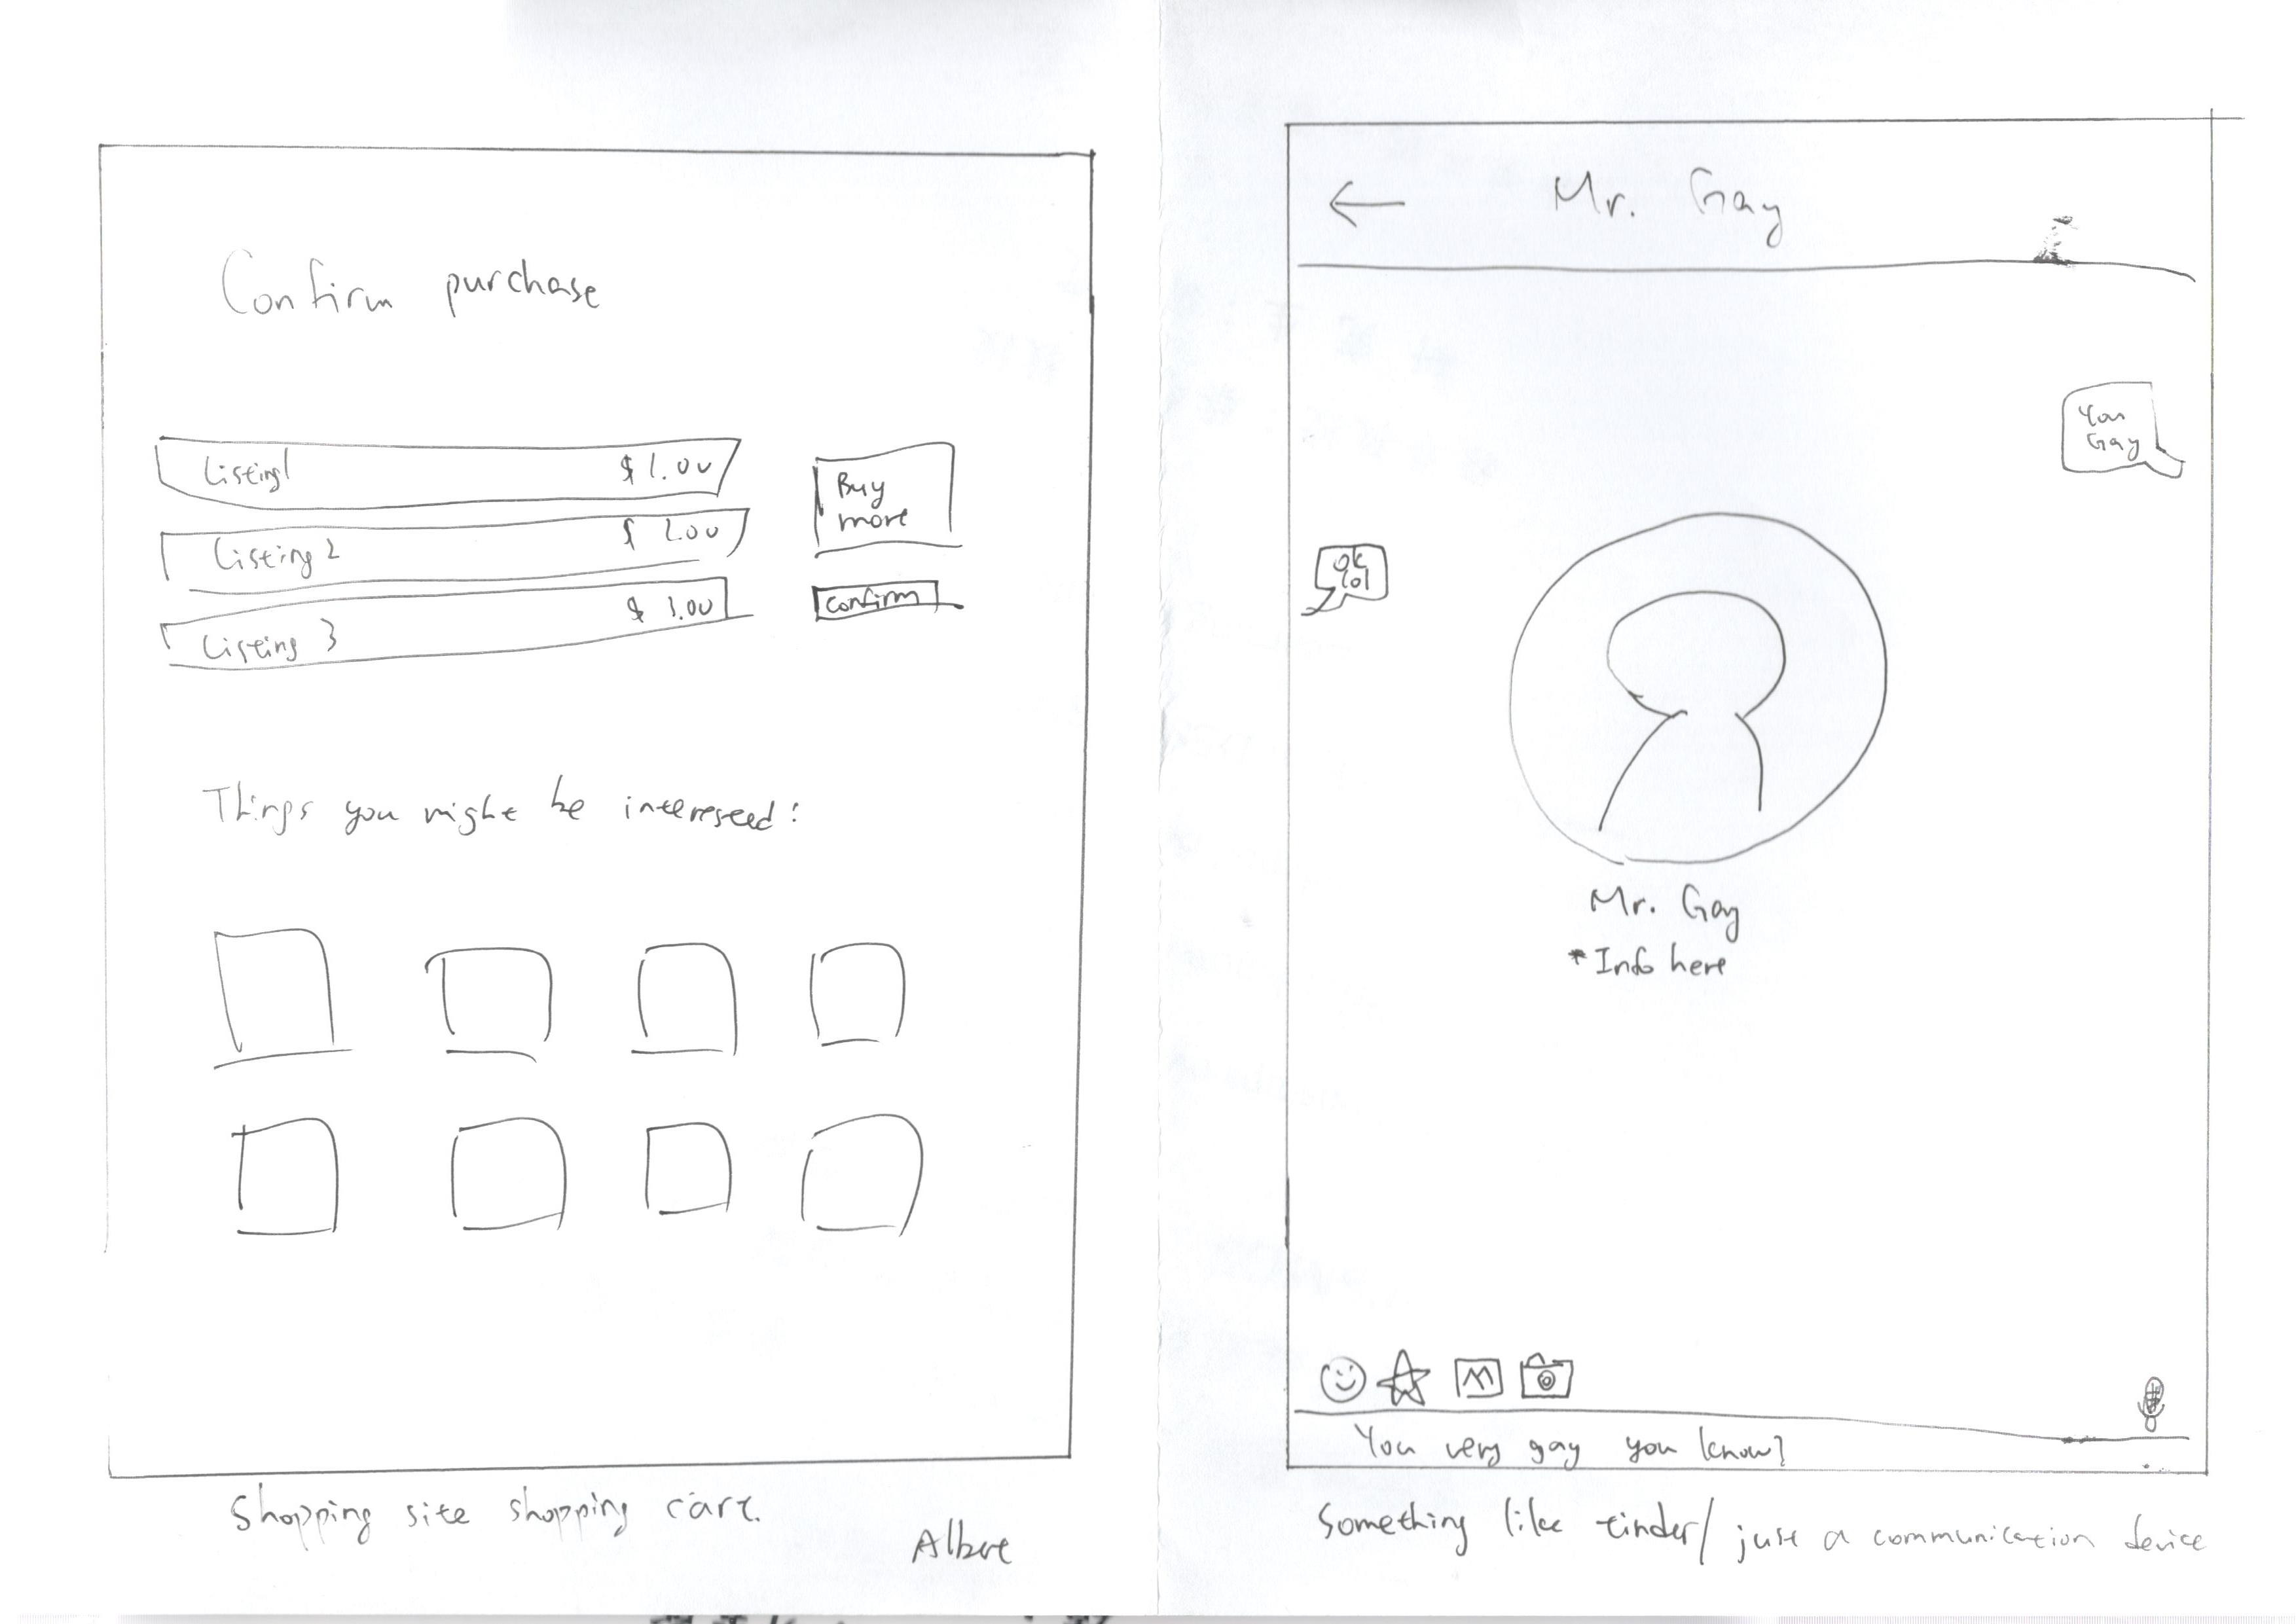 Confirm purchase
Listing1 $1.00
Listing 2 $ 2.00
Listing 3 $ 3.00
Buy
more
Confirm
Things you might be interested:
Shopping site shopping cart.
Albert
Mr. Gay
You
Gay
ok
lol
Mr. Gay
*Info here
You very gay you know?
Something like tinder/ just a communication device